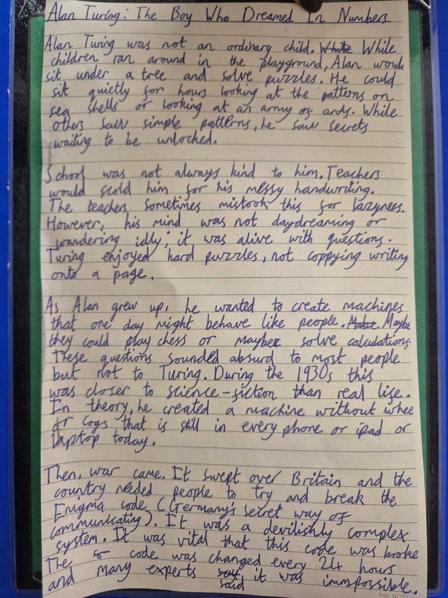 Alan Turing: The Boy Who Dreamed In Numbers
Alan Turing was not an ordinary child. While While
children ran around in the playground, Alan would
sit under a tree and solve puzzles. He could
sit quietly for hours looking at the patterns on
sea shells or looking at an army of ants. While
others saw simple patterns, he saw secrets
waiting to be unlocked.
School was not always kind to him. Teachers
would scold him for his messy handwriting.
The teachers sometimes mistook this for lazyness.
However, his mind was not daydreaming or
wandering idly; it was alive with questions.
Turing enjoyed hard puzzles, not coppying writing
onto a page.
As Alan grew up, he wanted to create machines
that one day might behave like people. Maybe
they could play chess or maybe solve calculations.
These questions sounded absurd to most people
but not to Turing. During the 1930s this
was closer to science-fiction than real life.
In theory, he created a machine without whee
or cogs that is still in every phone or ipad or
laptop today.
Then, war came. It swept over Britain and the
country needed people to try and break the
Enigma code (Germany's secret way of
communicating). It was a devilishly complex
system. It was vital that this code was broke
The code was changed every 24 hours
and many experts said it was immpossible.